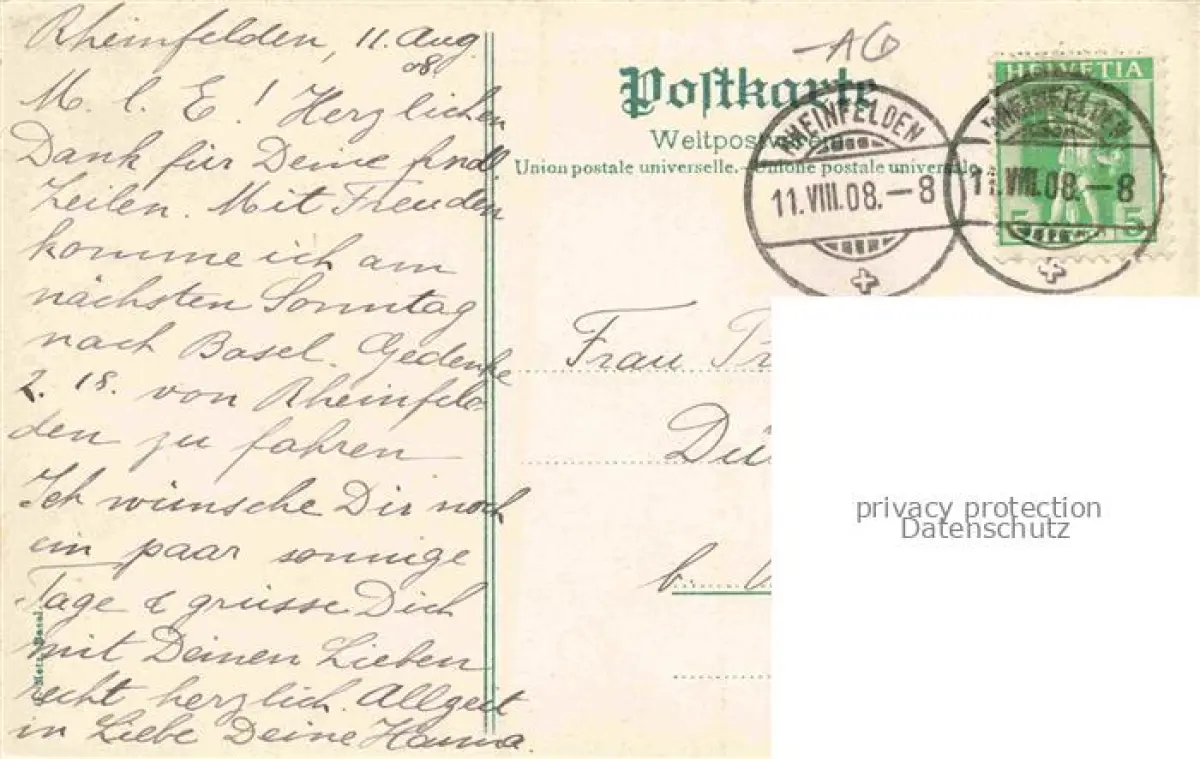 Rheinfelden, 11. Aug.
08.
M. l. E! Herzlichen
Dank für Deine frndl.
Zeilen. Mit Freuden
komme ich am
nächsten Sonntag
nach Basel. Gedenke
2.18. von Rheinfel-
den zu fahren
Ich wünsche Dir noch
ein paar sonnige
Tage & grüsse Dich
mit Deinen Lieben
recht herzlich. Allzeit
in Liebe Deine Hanna.
Basel.
AG
Postkarte
Weltpostverein
Union postale universelle. - Unione postale universale
HELVETIA
5 5
RHEINFELDEN
11.VIII.08.-8
RHEINFELDEN
11.VIII.08.-8
Frau
b.
privacy protection
Datenschutz